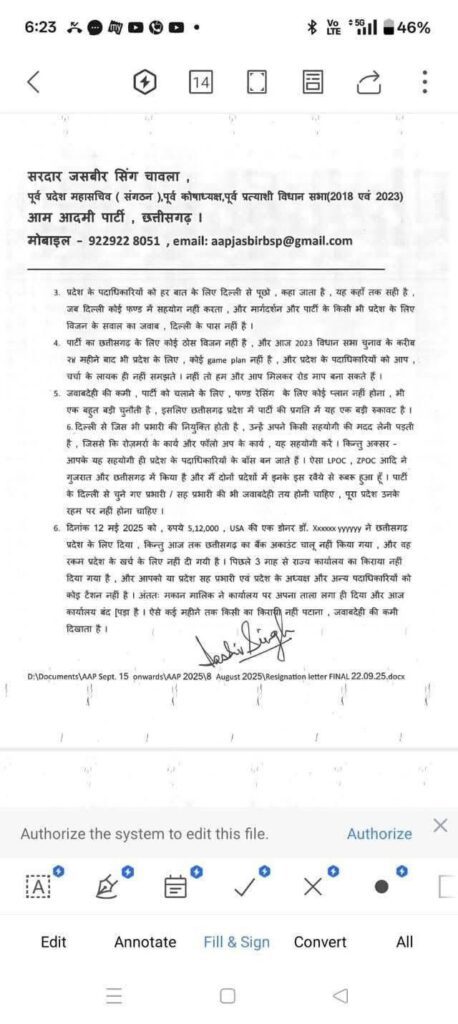 6:23
Vo LTE 5G 46%
14
सरदार जसबीर सिंग चावला ,
पूर्व प्रदेश महासचिव ( संगठन ),पूर्व कोषाध्यक्ष,पूर्व प्रत्याशी विधान सभा(2018 एवं 2023)
आम आदमी पार्टी , छत्तीसगढ़ ।
मोबाइल - 922922 8051 , email: aapjasbirbsp@gmail.com
3. प्रदेश के पदाधिकारियों को हर बात के लिए दिल्ली से पूछो , कहा जाता है , यह कहाँ तक सही है ,
जब दिल्ली कोई फण्ड में सहयोग नहीं करता , और मार्गदर्शन और पार्टी के किसी भी प्रदेश के लिए
विजन के सवाल का जवाब , दिल्ली के पास नहीं है ।
4. पार्टी का छत्तीसगढ़ के लिए कोई ठोस विजन नहीं है , और आज 2023 विधान सभा चुनाव के करीब
२४ महीने बाद भी प्रदेश के लिए , कोई game plan नहीं है , और प्रदेश के पदाधिकारियों को आप ,
चर्चा के लायक ही नहीं समझते । नहीं तो हम और आप मिलकर रोड माप बना सकते हैं ।
5. जवाबदेही की कमी , पार्टी को चलाने के लिए , फण्ड रेसिंग के लिए कोई प्लान नहीं होना , भी
एक बहुत बड़ी चुनौती है , इसलिए छत्तीसगढ़ प्रदेश में पार्टी की प्रगति में यह एक बड़ी रुकावट है ।
6. दिल्ली से जिस भी प्रभारी की नियुक्ति होती है , उन्हें अपने किसी सहयोगी की मदद लेनी पड़ती
है , जिससे कि रोज़मर्रा के कार्य और फॉलो अप के कार्य , यह सहयोगी करें । किन्तु अक्सर -
आपके यह सहयोगी ही प्रदेश के पदाधिकारियों के बॉस बन जाते हैं । ऐसा LPOC , ZPOC आदि ने
गुजरात और छत्तीसगढ़ में किया है और में दोनों प्रदेशों में इनके इस रवैये से रूबरू हुआ हूँ । पार्टी
के दिल्ली से चुने गए प्रभारी / सह प्रभारी की भी जवाबदेही तय होनी चाहिए , पूरा प्रदेश उनके
रहम पर नहीं होना चाहिए ।
6. दिनांक 12 मई 2025 को , रुपये 5,12,000 , USA की एक डोनर डॉ. Xxxxxx yyyyyy ने छत्तीसगढ़
प्रदेश के लिए दिया , किन्तु आज तक छत्तीसगढ़ का बैंक अकाउंट चालू नहीं किया गया , और वह
रकम प्रदेश के खर्च के लिए नहीं दी गयी है । पिछले 3 माह से राज्य कार्यालय का किराया नहीं
दिया गया है , और आपको या प्रदेश सह प्रभारी एवं प्रदेश के अध्यक्ष और अन्य पदाधिकारियों को
कोइ टैशन नहीं है । अंततः मकान मालिक ने कार्यालय पर अपना ताला लगा ही दिया और आज
कार्यालय बंद पड़ा है । ऐसे कई महीने तक किसी का किराया नहीं पटाना , जवाबदेही की कमी
दिखाता है ।
Jasbir Singh
D:\Documents\AAP Sept. 15 onwards\AAP 2025\8 August 2025\Resignation letter FINAL 22.09.25.docx
Authorize the system to edit this file.
Authorize
A
Edit
Annotate
Fill & Sign
Convert
All